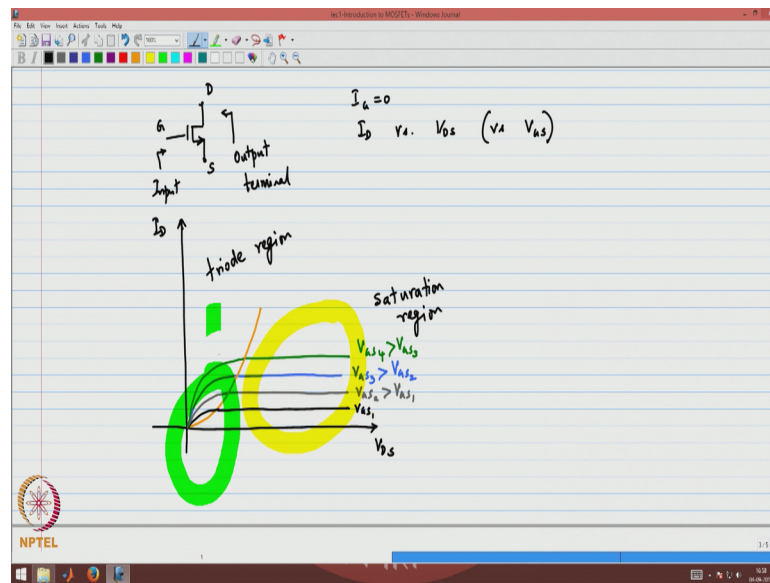 lec1-Introduction to MOSFETs - Windows Journal
File Edit View Insert Actions Tools Help
B I
D
G
S
Input
Output
terminal
I_G = 0
I_D vs. V_DS (vs V_GS)
I_D
triode region
saturation
region
V_GS4 > V_GS3
V_GS3 > V_GS2
V_GS2 > V_GS1
V_GS1
V_DS
NPTEL
1
3/5
16:58